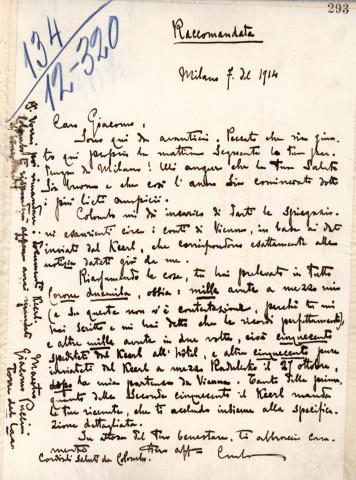 293
134
12-320
Raccomandata
Milano 7. del 1914
Caro Giacomo,
Sono qui da avantieri. Peccato che sia giun-
to qui proprio la mattina seguente la tua par-
tenza da Milano! Mi auguro che la tua salute
sia buona e che così l'anno sia cominciato sotto
i più lieti auspicii.
Colombo mi dà incarico di darti le spiegazio-
ni esaurienti circa i conti di Vienna, in base ai dati
inviati dal Keerl, che corrispondono esattamente alle
notizie dateti già da me.
Riassumendo le cose, tu hai prelevato in tutto
corone duemila, ossia: mille avute a mezzo mio
(e su queste non v'è contestazione, perchè tu mi
hai scritto e mi hai detto che le ricordi perfettamente),
e altre mille avute in due volte, cioè cinquecento
spediteti dal Keerl all'hôtel, e altre cinquecento pure
inviateti dal Keerl a mezzo il 27 ottobre,
dopo la mia partenza da Vienna. Tanto delle prime,
quanto delle seconde cinquecento il Keerl manda
le tue ricevute, che ti accludo insieme alla specifica-
zione dettagliata.
In attesa del tuo benestare, ti abbraccio cara-
mente
Cordiali saluti da Colombo.
Tuo aff
Maestro
Giacomo Puccini
Torre del Lago